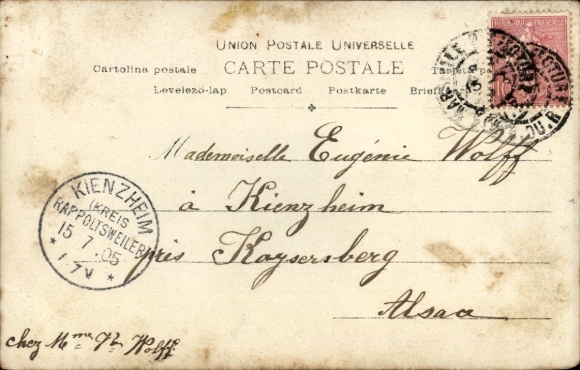 UNION POSTALE UNIVERSELLE
CARTE POSTALE
Cartolina postale
Levelező-lap Postcard Postkarte
Mademoiselle Eugénie Wolff
à Kienzheim
près Kaysersberg
Alsace
KIENZHEIM
(KREIS
RAPPOLTSWEILER)
15 7 05
chez Mme Vve Wolff